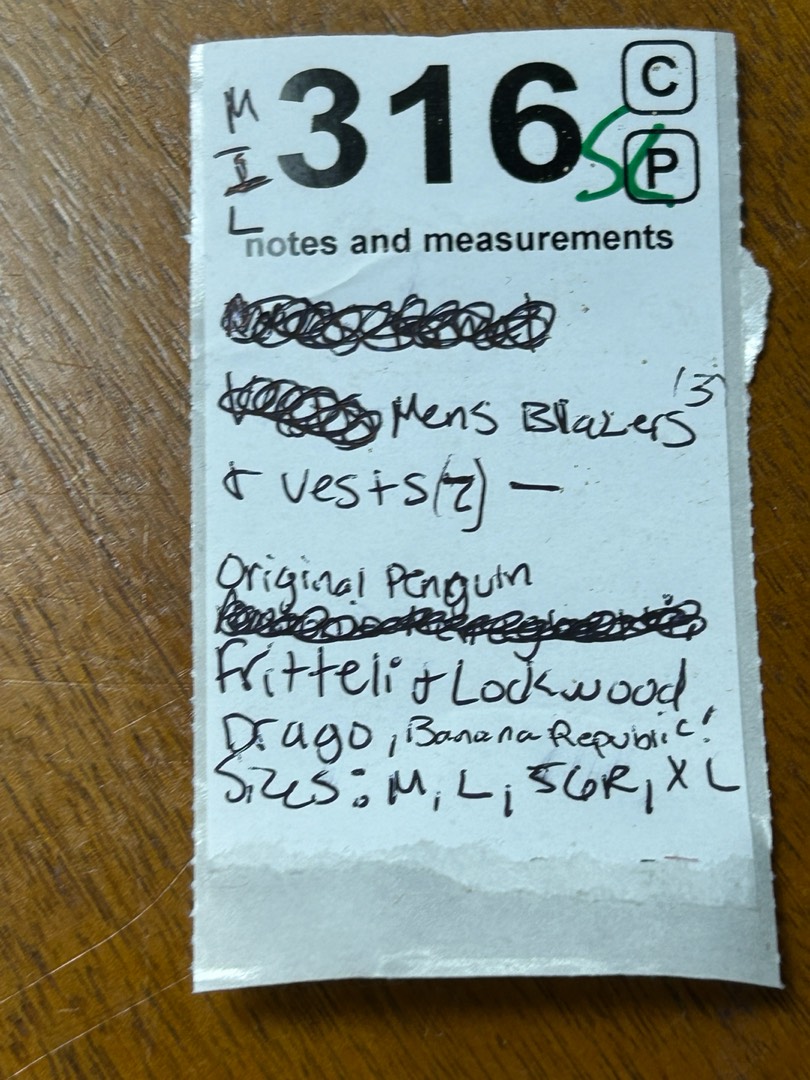 M
I
L
316
C
P
SL
notes and measurements
Mens Blazers (3)
+ vests (2) —
Original Penguin
Fritteli + Lockwood
Drago, Banana Republic!
Sizes: M, L, 56R, XL